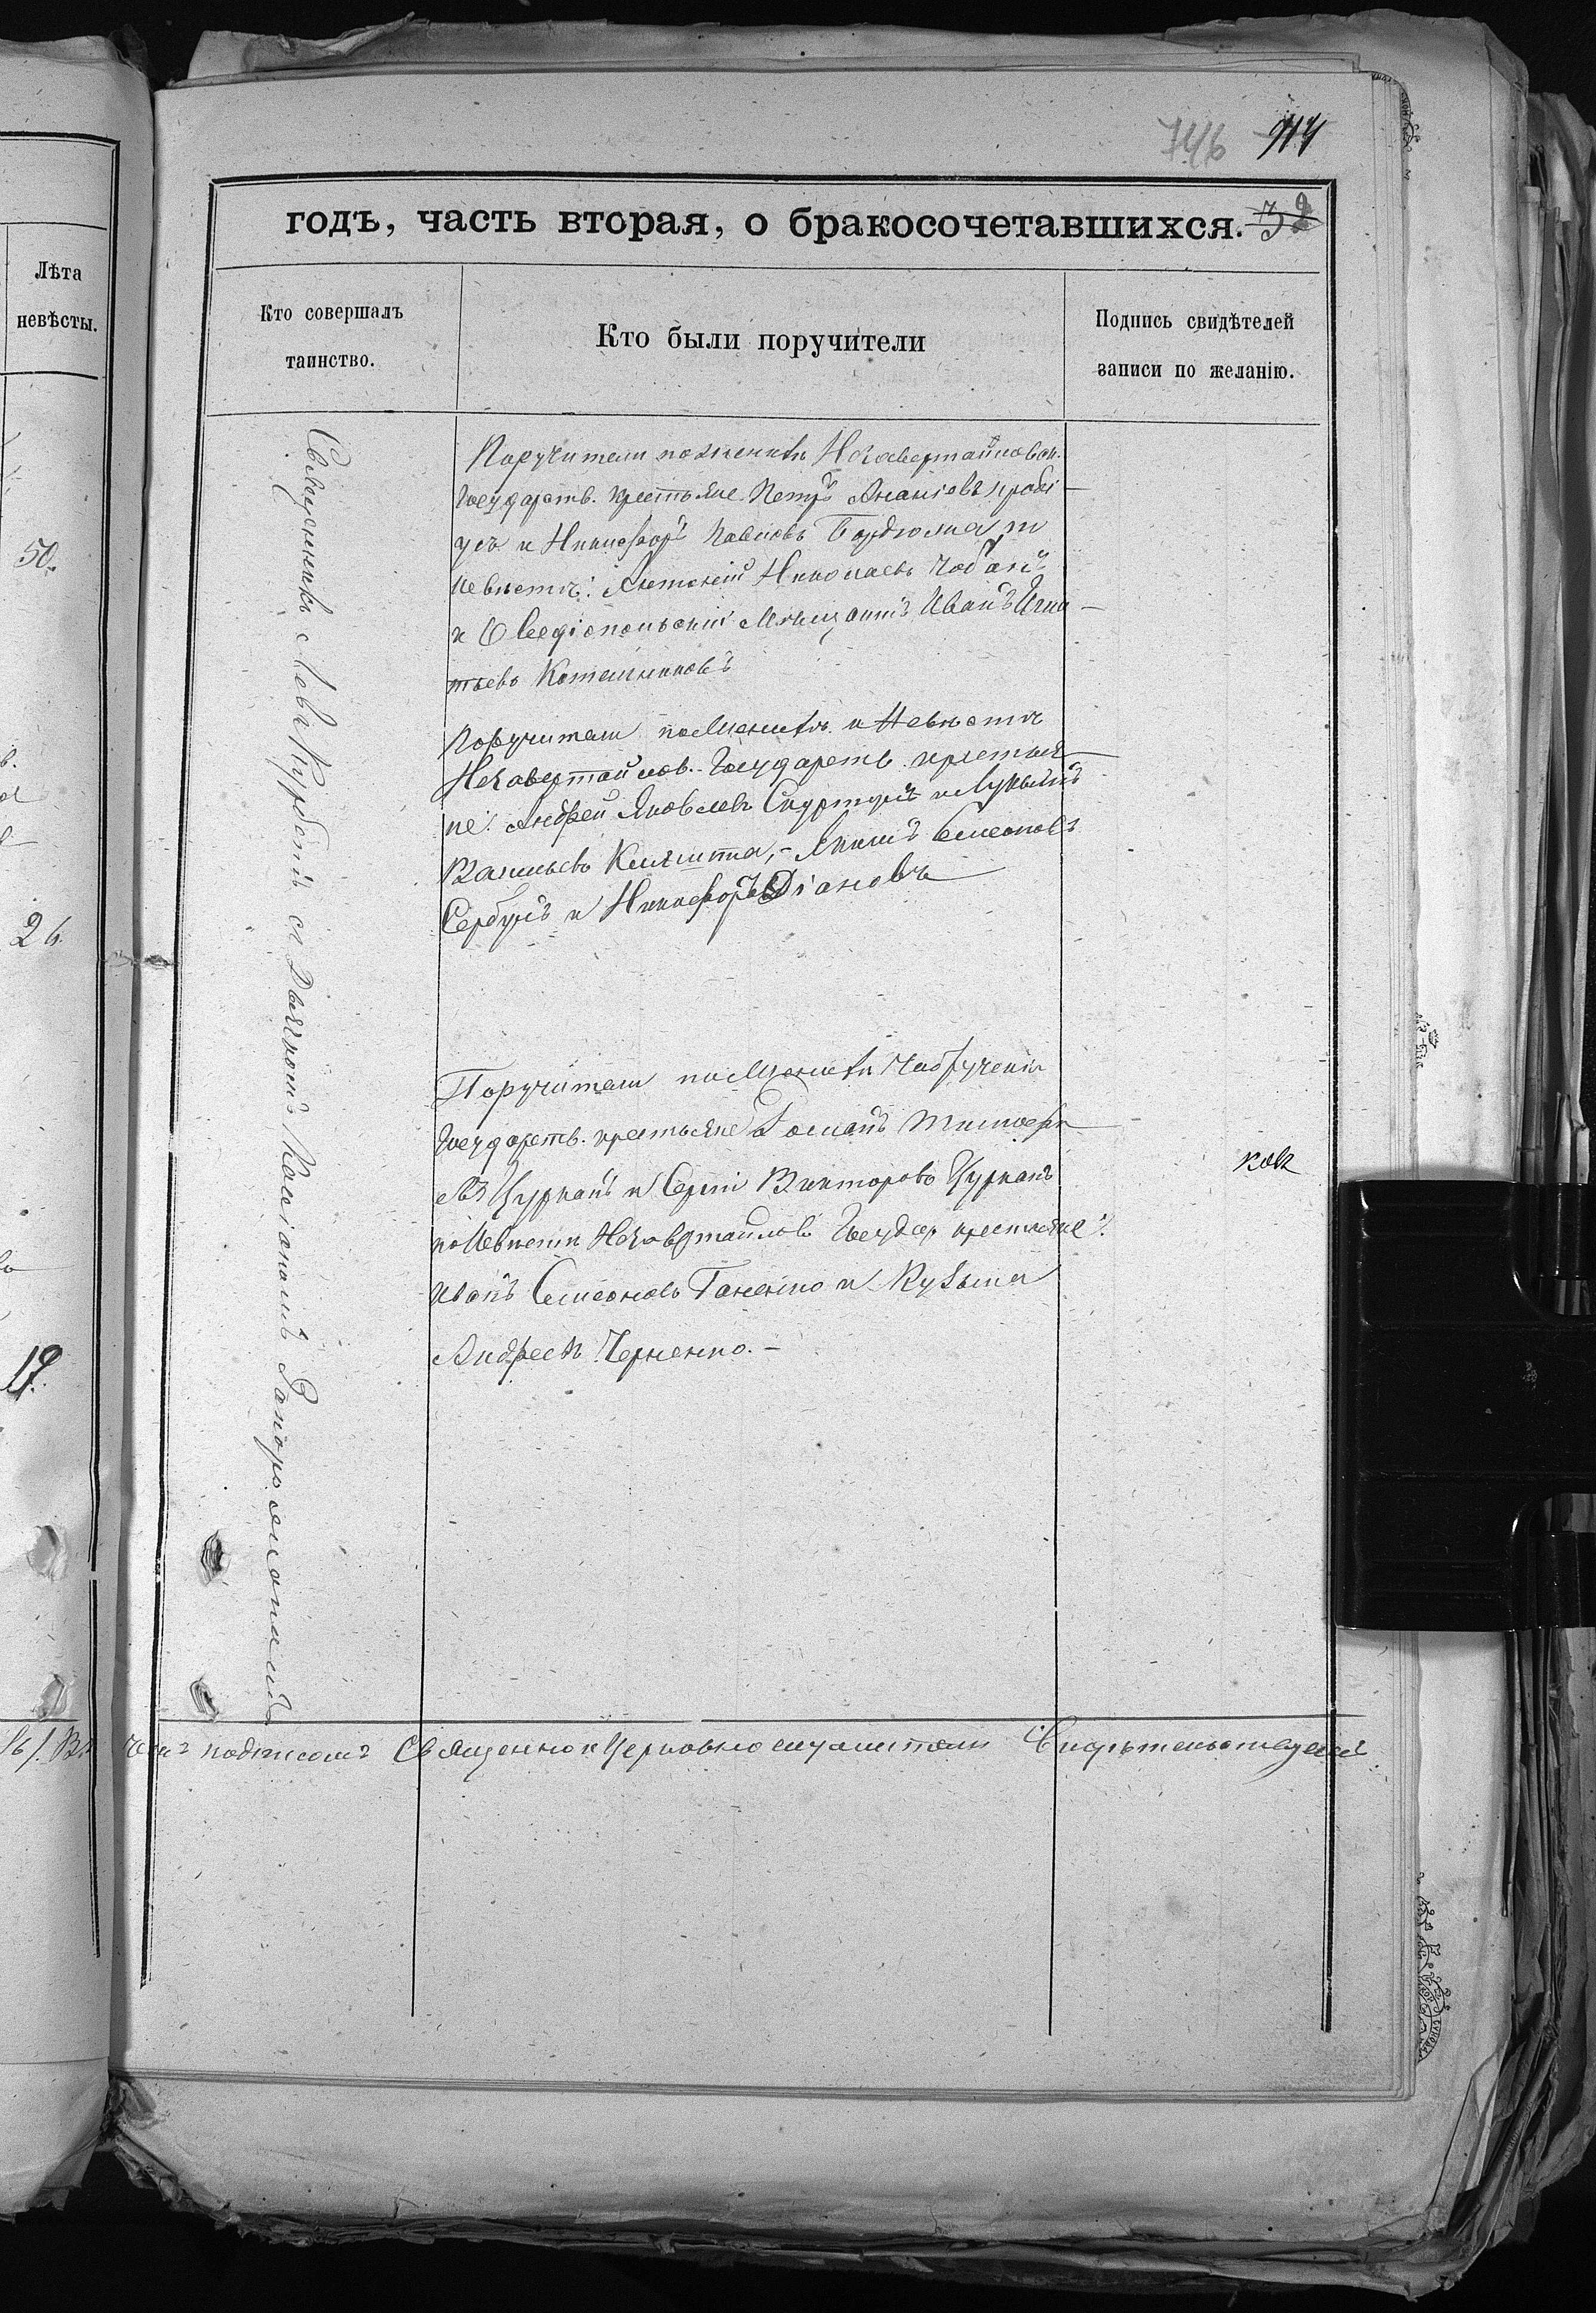 746 914
годъ, часть вторая, о бракосочетавшихся. 32
Лѣта
невѣсты.
Кто совершалъ
таинство.
Кто были поручители
Подпись свидѣтелей
записи по желанію.
50.
26.
19.
Священникъ Левъ Курбетъ съ Дьячкомъ Кассіаномъ
Поручители по жениху
Государств. крестьяне Петръ Ананіевъ
и Никифоръ Павловъ Бордюжа, по
невѣстѣ: Антоній Николаевъ Чобанъ
и Овидіопольскій Мѣщанинъ Иванъ Игна-
тьевъ Котельниковъ
Поручители по Женихѣ и Невѣстѣ
Государств. крестья-
не: Андрей Яковлевъ и Лукьянъ
Васильевъ Якимъ Семеоновъ
Сербулъ и Никифоръ Діановъ
Поручители по Женихѣ Чобручскіе
Государств. крестьяне Романъ Тимофе-
евъ Цурканъ и Сергій Викторовъ Цурканъ
по Невѣстѣ Государ крестьяне:
Иванъ Семеоновъ Ганенко и Кузьма
Андреевъ Черненко.
чемъ подписомъ Священно и Церковно служители Свидѣтельствуемъ